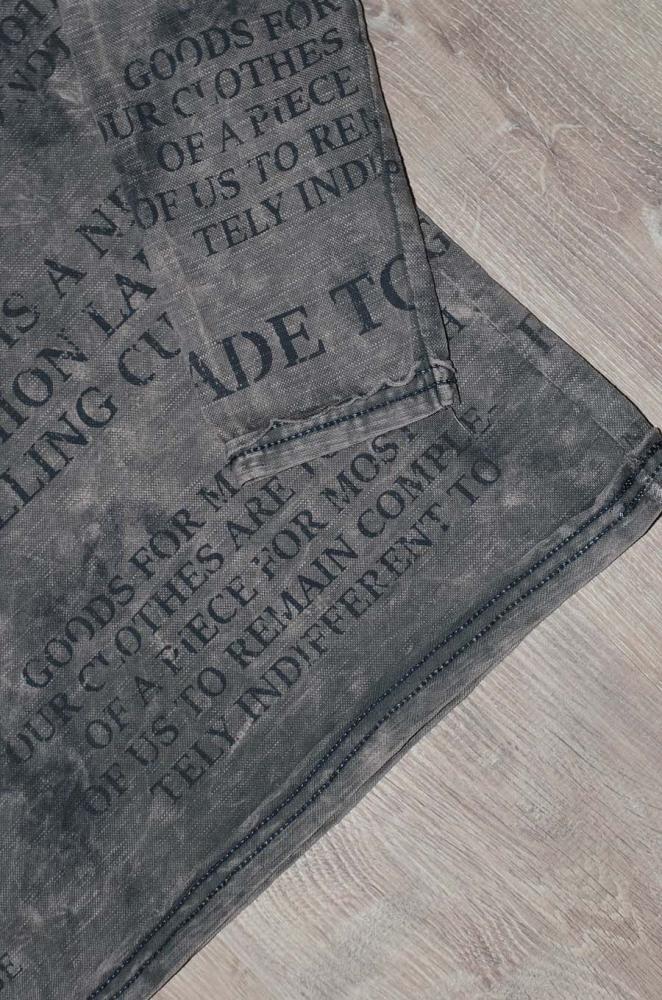 GOODS FOR
OUR CLOTHES
OF A PIECE
OF US TO REM
TELY INDI
IS A N
ION LA
LLING CU
ADE TOG
GOODS FOR M
OUR CLOTHES ARE
OF A PIECE FOR MOST
OF US TO REMAIN COMPLE-
TELY INDIFFERENT TO